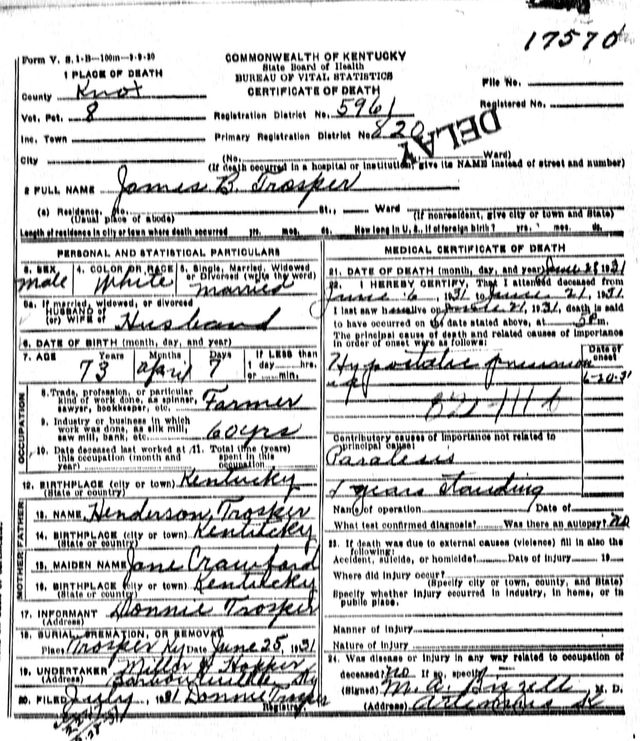 17570
Form V. S. 1-B-100m-9-9-30
COMMONWEALTH OF KENTUCKY
State Board of Health
BUREAU OF VITAL STATISTICS
CERTIFICATE OF DEATH
File No.
Registered No.
1 PLACE OF DEATH
County Knox
Vot. Pct. 8
Registration District No. 5961
Inc. Town
Primary Registration District No. 820
DELAY
City (No. Ward)
(If death occurred in a hospital or institution, give its NAME instead of street and number)
2 FULL NAME James B. Trosper
(a) Residence, No. St., Ward
(Usual place of abode) (If nonresident, give city or town and State)
Length of residence in city or town where death occurred yrs. mos. ds. How long in U. S., if of foreign birth? yrs. mos. ds.
PERSONAL AND STATISTICAL PARTICULARS
3. SEX 4. COLOR OR RACE 5. Single, Married, Widowed or Divorced (write the word)
male White married
5a. If married, widowed, or divorced
HUSBAND of
(or) WIFE of Husband
6. DATE OF BIRTH (month, day, and year)
7. AGE Years Months Days If LESS than 1 day hrs. or min.
73 april 7
OCCUPATION
8. Trade, profession, or particular
kind of work done, as spinner,
sawyer, bookkeeper, etc. Farmer
9. Industry or business in which
work was done, as silk mill,
saw mill, bank, etc. 60 yrs
10. Date deceased last worked at this occupation (month and year)
11. Total time (years) spent in this occupation
12. BIRTHPLACE (city or town) Kentucky
(State or country)
MOTHER FATHER
13. NAME Henderson Trosper
14. BIRTHPLACE (city or town) Kentucky
(State or country)
15. MAIDEN NAME Jane Crawford
16. BIRTHPLACE (city or town) Kentucky
(State or country)
17. INFORMANT Donnie Trosper
(Address)
18. BURIAL, CREMATION, OR REMOVAL
Place Trosper Ky Date June 25, 1931
19. UNDERTAKER
(Address)
20. FILED , 1931 Donnie Trosper
Registrar
MEDICAL CERTIFICATE OF DEATH
21. DATE OF DEATH (month, day, and year) June 1931
22. I HEREBY CERTIFY, That I attended deceased from
June 6, 1931 to June 21, 1931
I last saw h alive on 21, 1931, death is said
to have occurred on the date stated above, at m.
The principal cause of death and related causes of importance
in order of onset were as follows:
Date of onset
Hypostatic
6-20-31
Contributory causes of importance not related to
principal cause:
years standing
Name of operation Date of
What test confirmed diagnosis? Was there an autopsy? no
23. If death was due to external causes (violence) fill in also the
following:
Accident, suicide, or homicide? Date of injury 19
Where did injury occur?
(Specify city or town, county, and State)
Specify whether injury occurred in industry, in home, or in
public place.
Manner of Injury
Nature of Injury
24. Was disease or injury in any way related to occupation of
deceased? no If so, specify
(Signed) M. A. M. D.
(Address)